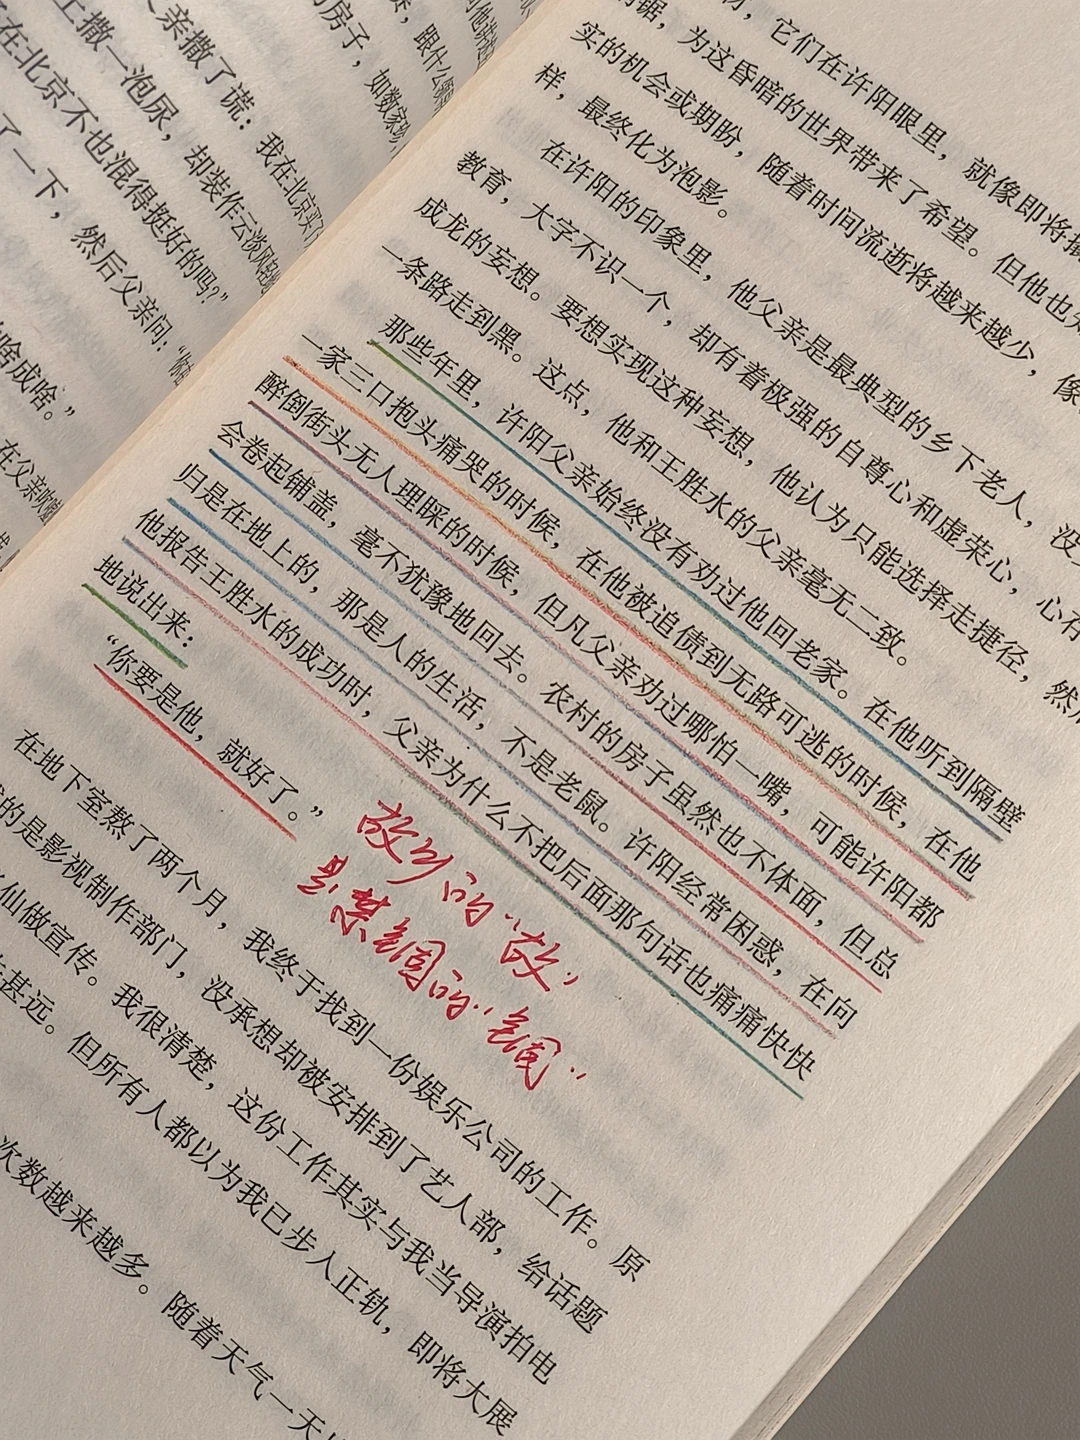 父亲撒了谎：我在北京买
上撒一泡尿，却装作云淡风轻
在北京不也混得挺好的吗？”
了一下，然后父亲问：“你
啥成啥。”
在父亲
的房子，如数家珍
跟什么
材，它们在许阳眼里，就像即将
锯，为这昏暗的世界带来了希望。但他也
实的机会或期盼，随着时间流逝将越来越少，像
样，最终化为泡影。
在许阳的印象里，他父亲是最典型的乡下老人，没
教育，大字不识一个，却有着极强的自尊心和虚荣心，心存
成龙的妄想。要想实现这种妄想，他认为只能选择走捷径，然
一条路走到黑。这点，他和王胜水的父亲毫无二致。
那些年里，许阳父亲始终没有劝过他回老家。在他听到隔壁
一家三口抱头痛哭的时候，在他被追债到无路可逃的时候，在他
醉倒街头无人理睬的时候，但凡父亲劝过哪怕一嘴，可能许阳都
会卷起铺盖，毫不犹豫地回去。农村的房子虽然也不体面，但总
归是在地上的，那是人的生活，不是老鼠。许阳经常困惑，在向
他报告王胜水的成功时，父亲为什么不把后面那句话也痛痛快快
地说出来：
“你要是他，就好了。”
故乡的“故”
是禁锢的“锢”
在地下室熬了两个月，我终于找到一份娱乐公司的工作。原
的是影视制作部门，没承想却被安排到了艺人部，给话题
仙做宣传。我很清楚，这份工作其实与我当导演拍电
甚远。但所有人都以为我已步入正轨，即将大展
次数越来越多。随着天气一天